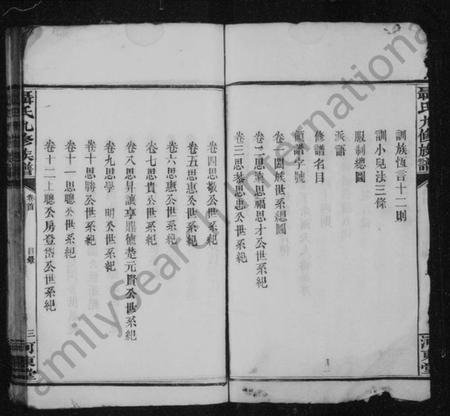 聶氏九修族譜
河東堂
訓族恆言十二則
訓小兒法三條
服制總圖
派語
修譜名目
領譜字號
卷一 閤族世系總圖
卷二思 思福思才公世系紀
卷三思 思忠公世系紀
卷四思敬公世系紀
卷五思忠公世系紀
卷六思惠公世系紀
卷七思貴公世系紀
卷八思昇讓享 楚元賓公世系紀
卷九思學 明公世系紀
卷十思勝公世系紀
卷十一思聰公世系紀
卷十二上聰公房登 公世系紀
聶氏九修族譜
卷首
目錄
三
河東堂
FamilySearch International